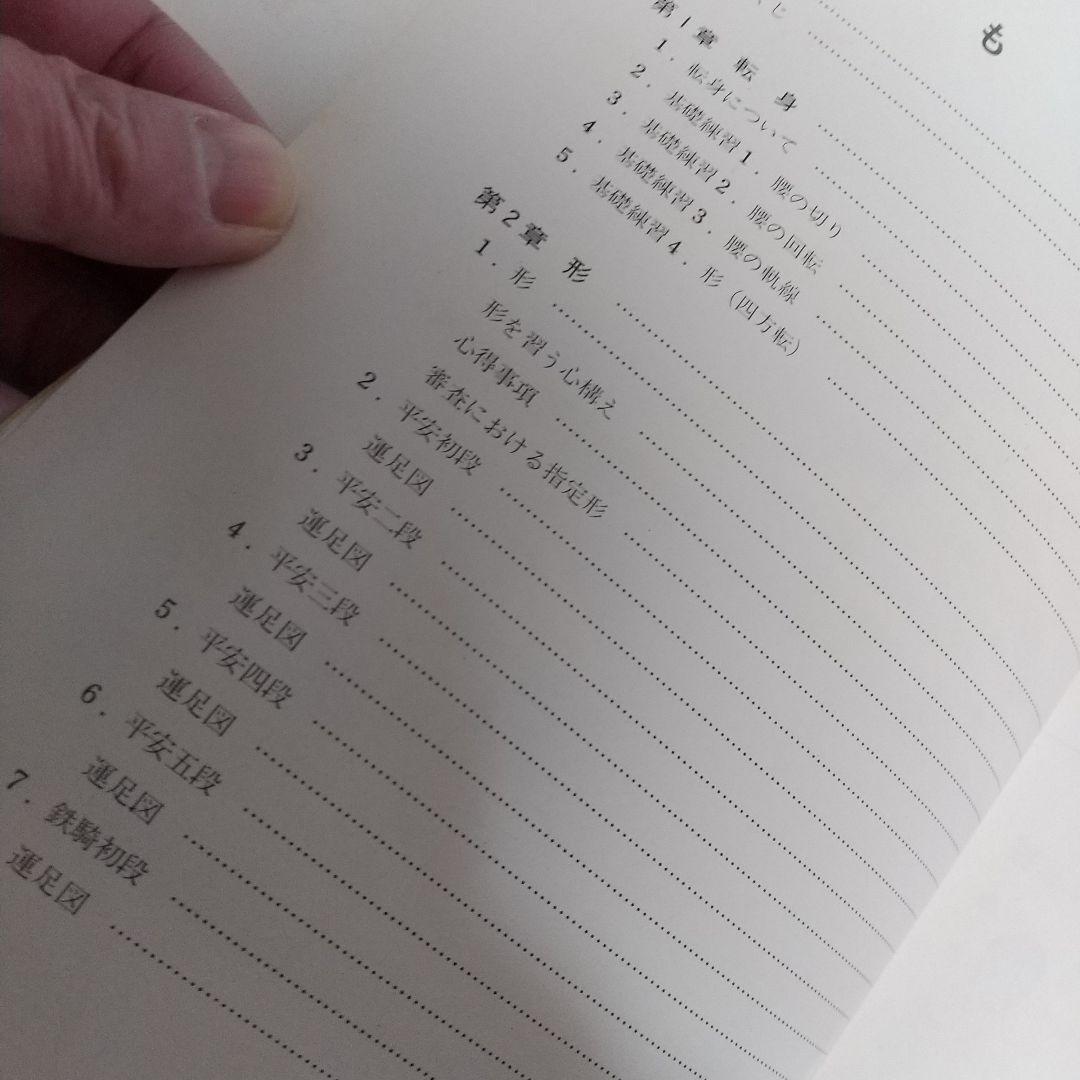 も
くじ
第1章 転身
1. 転身について
2. 基礎練習1. 腰の切り
3. 基礎練習2. 腰の回転
4. 基礎練習3. 腰の軌線
5. 基礎練習4. 形（四方転）
第2章 形
1. 形
形を習う心構え
心得事項
審査における指定形
2. 平安初段
運足図
3. 平安二段
運足図
4. 平安三段
運足図
5. 平安四段
運足図
6. 平安五段
運足図
7. 鉄騎初段
運足図